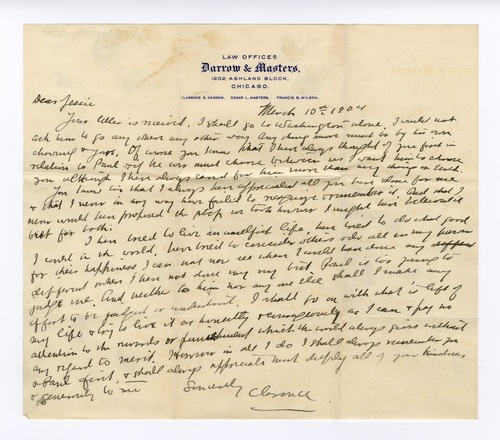 LAW OFFICES
Darrow & Masters,
1202 ASHLAND BLOCK,
CHICAGO.
CLARENCE S. DARROW. EDGAR L. MASTERS. FRANCIS S. WILSON.
March 10th 1904
Dear Jessie
Your letter is received. I shall go to Washington alone. I would not
ask him to go any where any other way. Any thing more must be by his own
choosing & yours. Of course you know that I have always thought of you first in
relation to Paul & if he ever must choose between us I want him to choose
you although I have always cared for him more than any thing on Earth
You know too that I always have appreciated all you have done for me
& that I never in any way have failed to recognize & remember it. And that I
never would have proposed the step we took unless I thought
best for both.
I have tried to live an unselfish life, have tried to do what good
I could in the world, have tried to consider others & do all in my power
for their happiness I can not now see where I could have done any
different or when I have not done my very best Paul is too young to
judge me. And neither to him nor any one else shall I make any
effort to be judged or understood. I shall go on with what is left of
my life & try to live it as honestly & courageously as I can & pay no
attention to the rewards or punishment which the world always gives without
any regard to merit. However in all I do I shall always remember you
& Paul first, & shall always appreciate most deeply all of your kindness
& generosity to me
Sincerely
Clarence